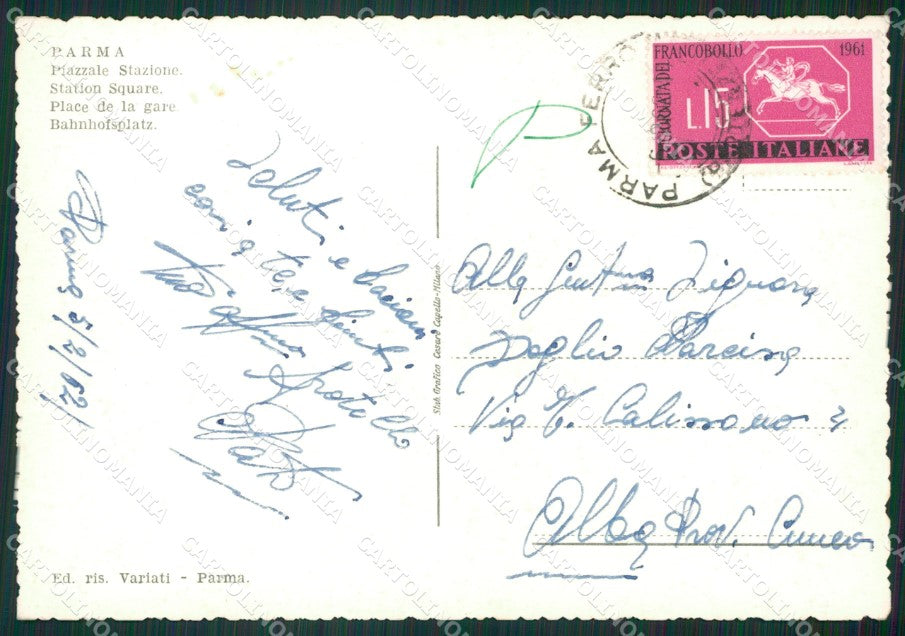 PARMA
Piazzale Stazione.
Station Square.
Place de la gare
Bahnhofsplatz.
GIORNATA DEL
FRANCOBOLLO
1961
L.15
POSTE ITALIANE
PARMA FERROVIA
Parma 5/2/62
Saluti e bacioni
con a te e
tuo aff.mo fratello
Alla Gent.ma Signora
Via T. Calissano 4
Alba Prov. Cuneo
Stab. Grafico Cesare Capello-Milano
Ed. ris. Variati - Parma.
CARTOLINOMANIA